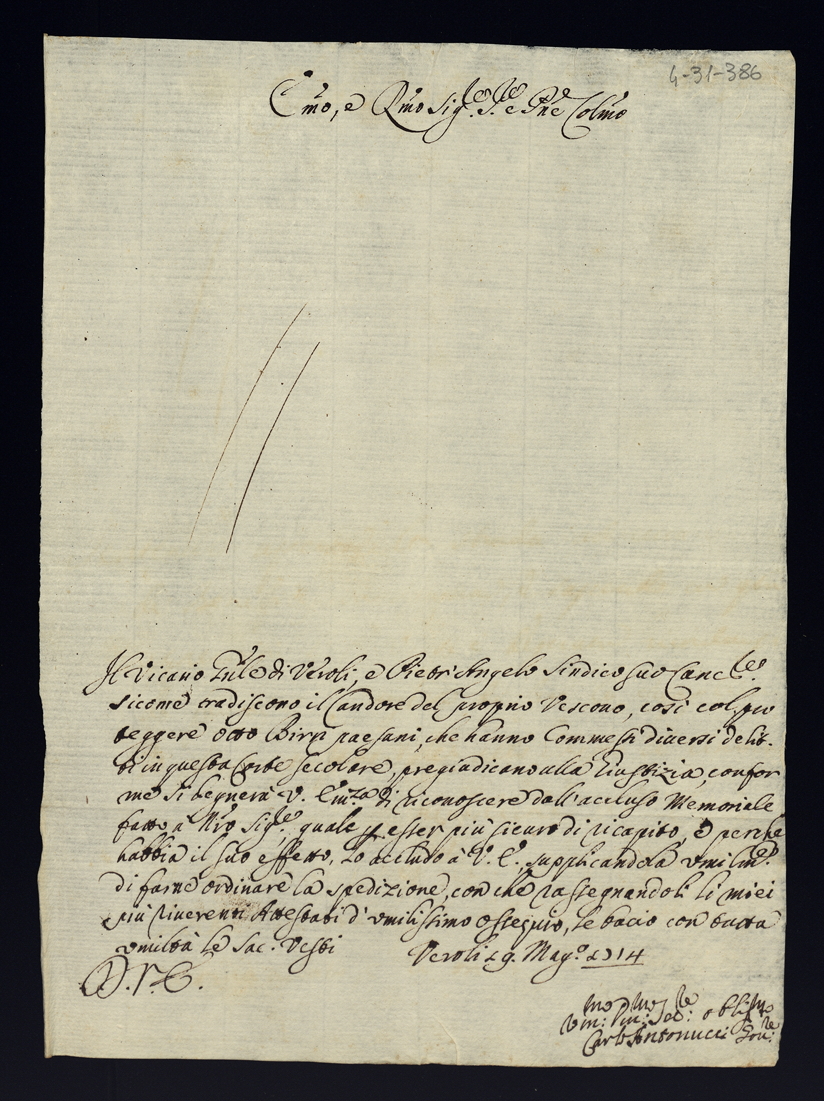 4-31-386
Em̃o, e Rm̃o Sig.re S.re e Pñe Colm̃o
Il Vicario Gñle di Veroli, e Pietr'Angelo Sindico suo Canc.re
sicome tradiscono il Candore del proprio Vescovo, così col pro
teggere otto Birri paesani, che hanno Commessi diversi delit-
ti in questa Corte secolare, pregiudicano alla Giustizia, confor
me si degnerà V. Em̃za di riconoscere dall'accluso Memoriale
fatto à Nr̃o Sig.re, quale per esser più sicuro di ricapito, e perche
habbia il suo effetto, lo accludo à V. E. supplicandola umilm.te
di farne ordinare la spedizione, con che rassegnandoli li miei
più riverenti Attestati d'umilissimo ossequio, le bacio con tutta
umiltà le Sac. Vesti Veroli 29. Mag.o 1714
D. V. E.
Um:mo Di:mo Se:re obblig:mo
Carlo Antonucci Gov:re